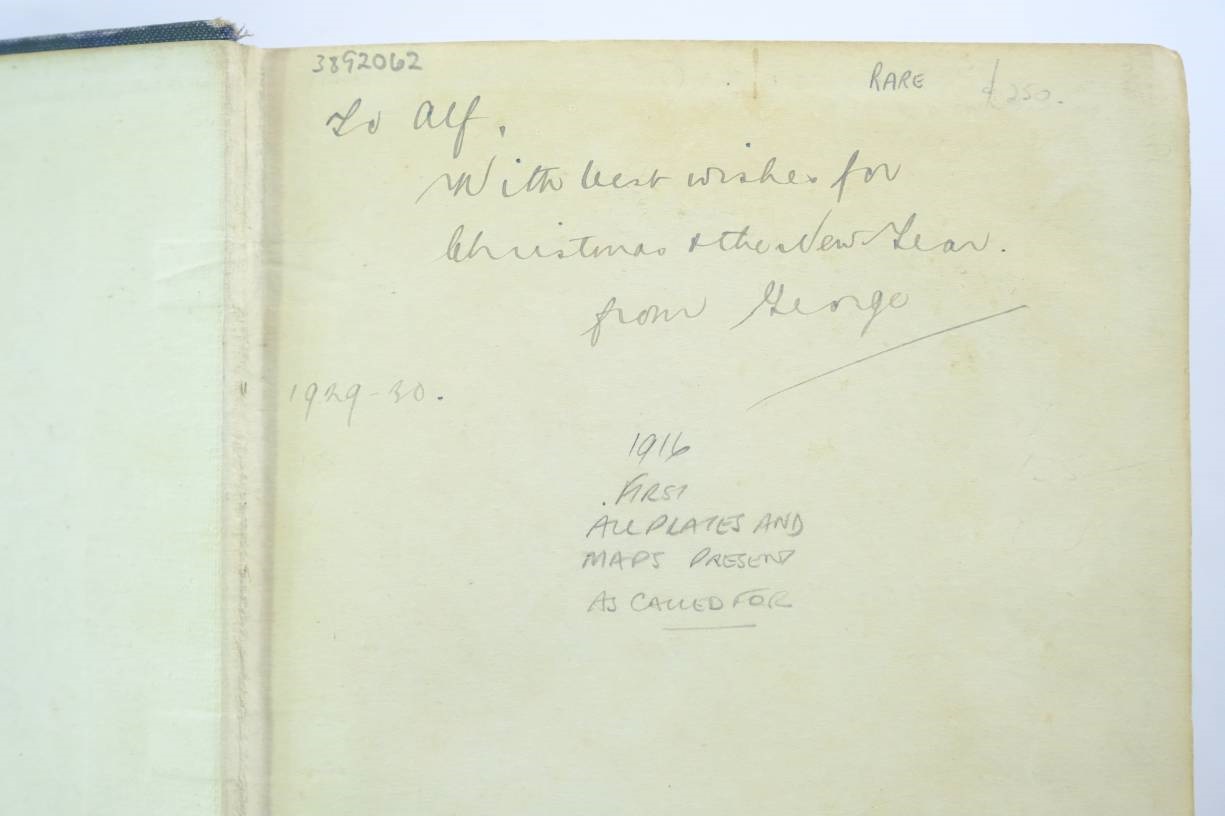 3892062
RARE £250.
To Alf.
With best wishes for
Christmas & the New Year.
from George
1929-30.
1916
FIRST
ALL PLATES AND
MAPS PRESENT
AS CALLED FOR